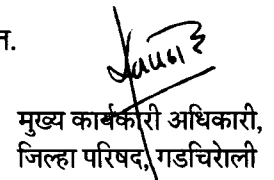 न.
मुख्य कार्यकारी अधिकारी,
जिल्हा परिषद, गडचिरोली